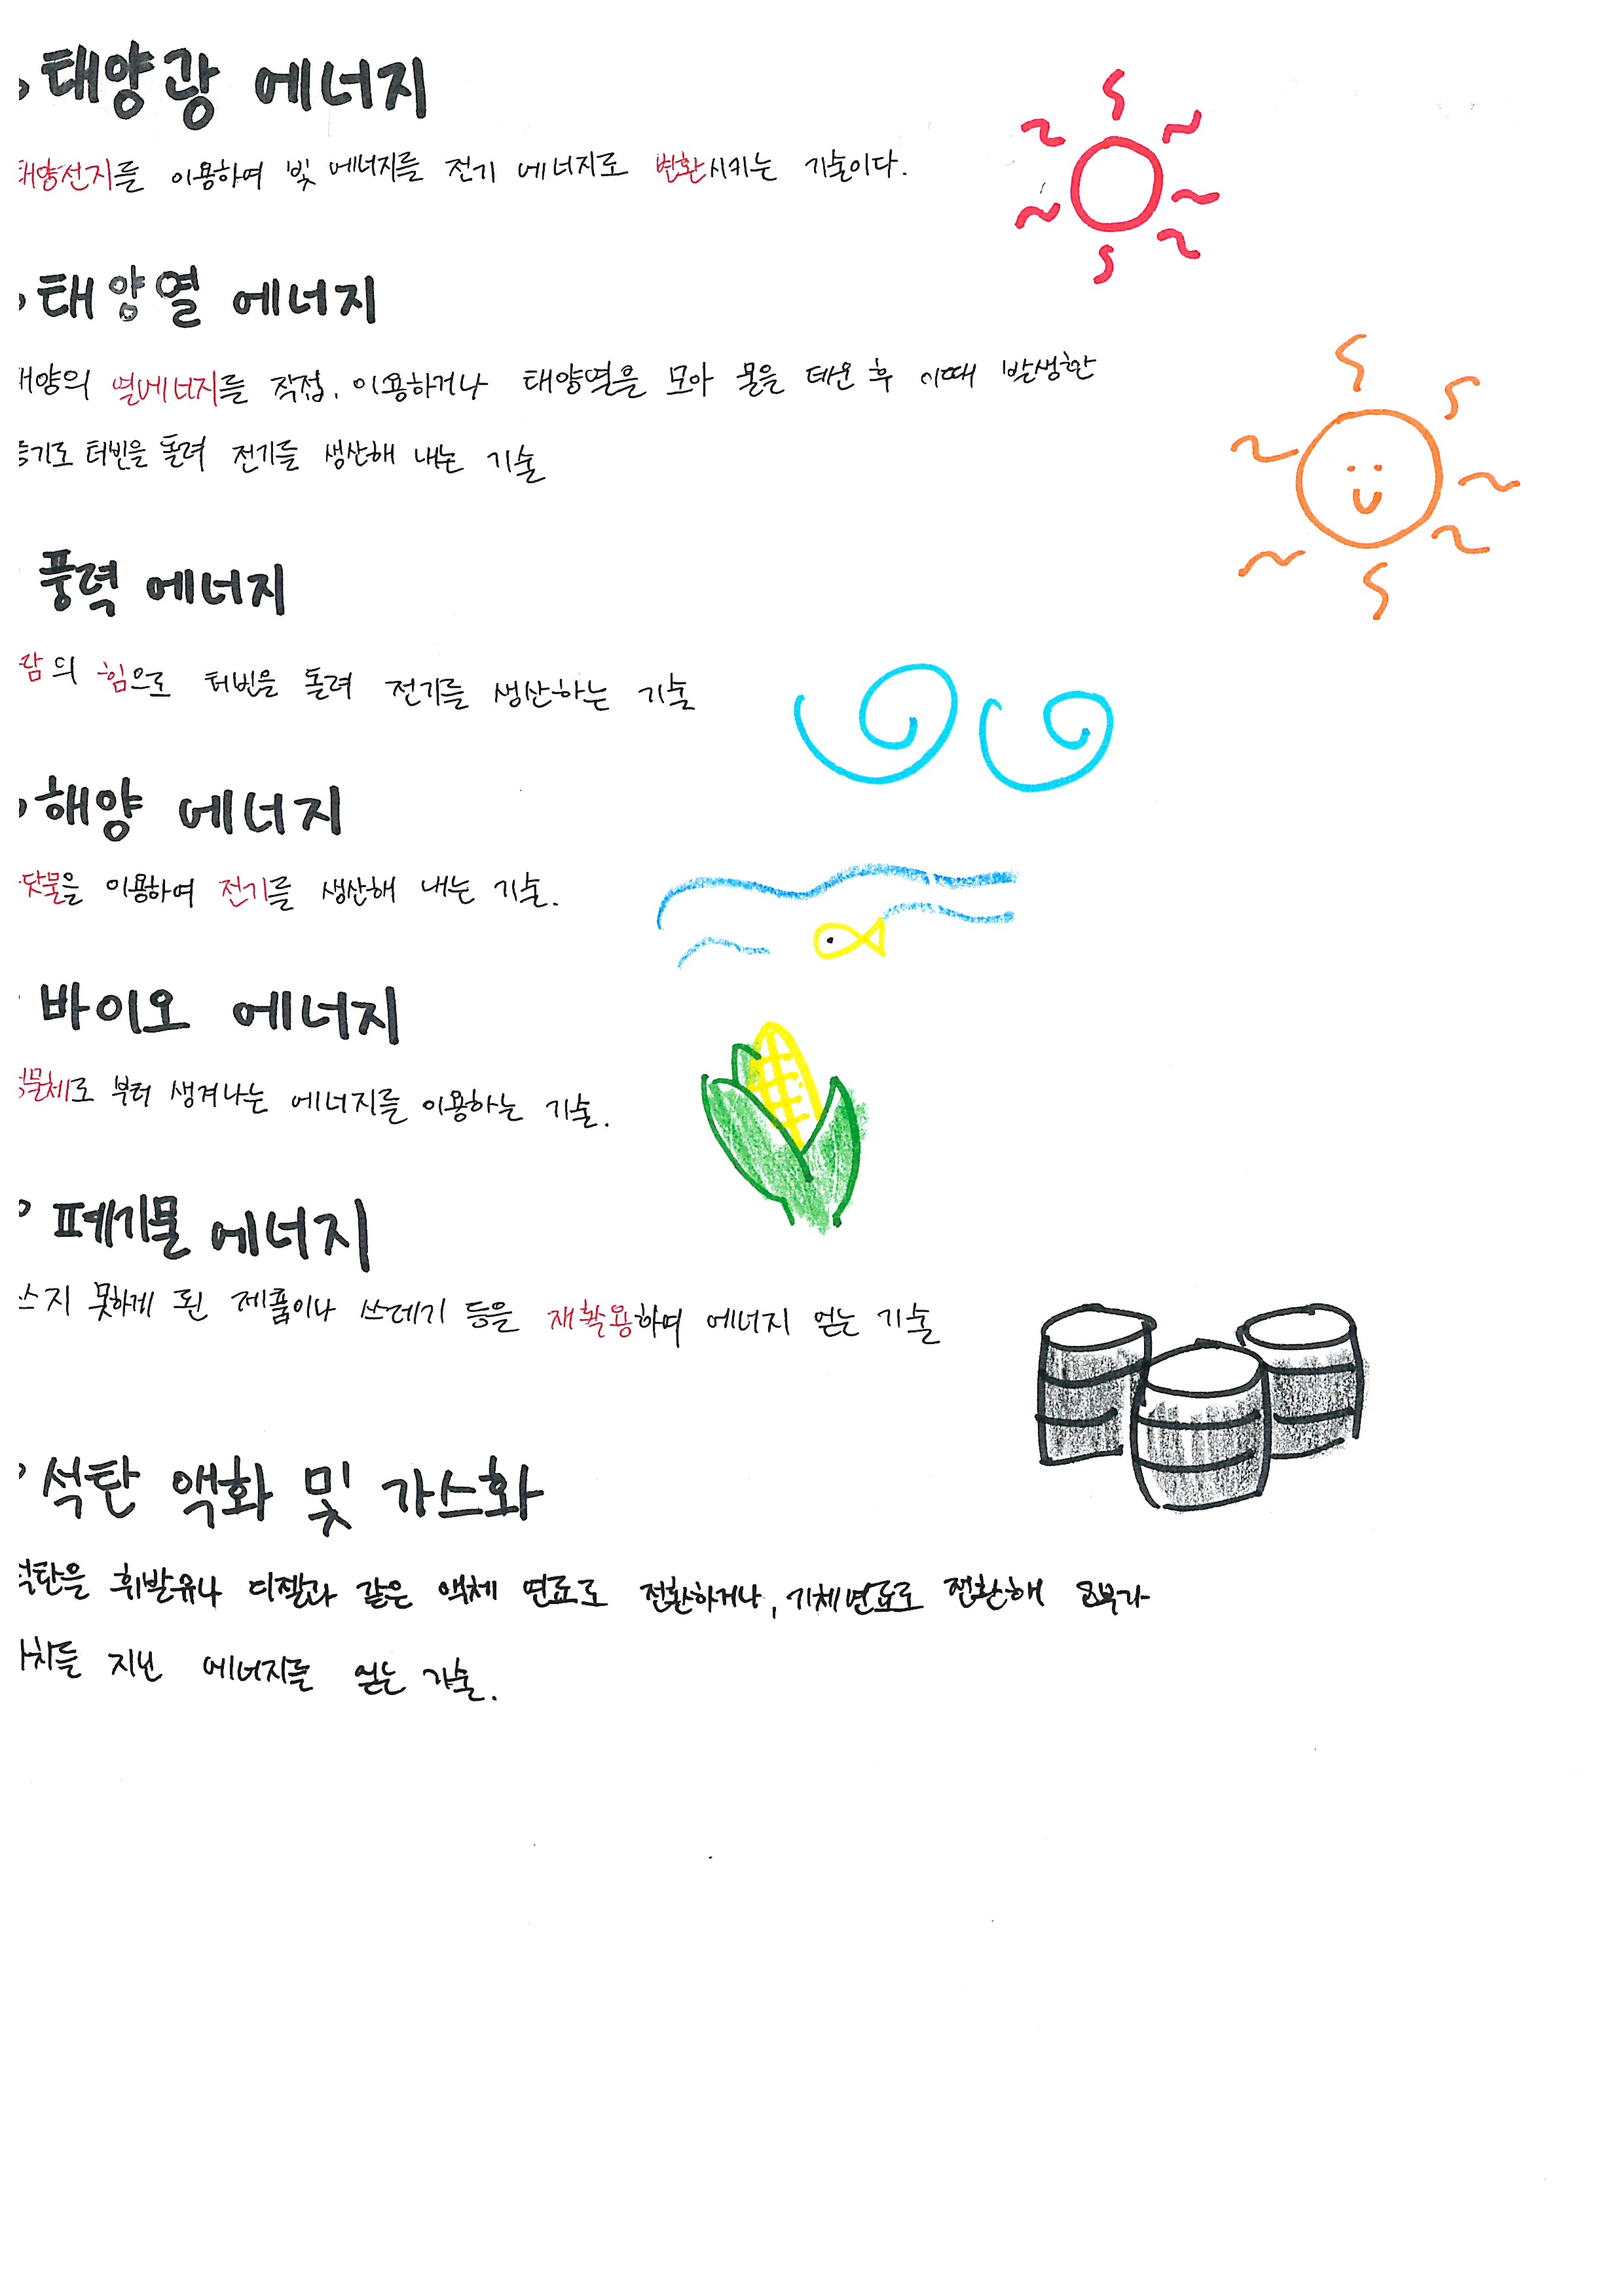 태양광 에너지
태양선지를 이용하여 빛 에너지를 전기 에너지로 변환시키는 기술이다.
태양열 에너지
태양의 열에너지를 직접, 이용하거나 태양열을 모아 물을 데온 후 이때 발생한
증기로 터빈을 돌려 전기를 생산해 내는 기술
풍력 에너지
람의 힘으로 터빈을 돌려 전기를 생산하는 기술
해양 에너지
닷물을 이용하여 전기를 생산해 내는 기술.
바이오 에너지
물체로 부터 생겨나는 에너지를 이용하는 기술.
폐기물 에너지
쓰지 못하게 된 제품이나 쓰레기 등을 재활용하여 에너지 얻는 기술
석탄 액화 및 가스화
석탄을 휘발유나 디젤과 같은 액체 연료로 전환하거나, 기체연료로 전환해 고부가
가치를 지닌 에너지를 얻는 기술.